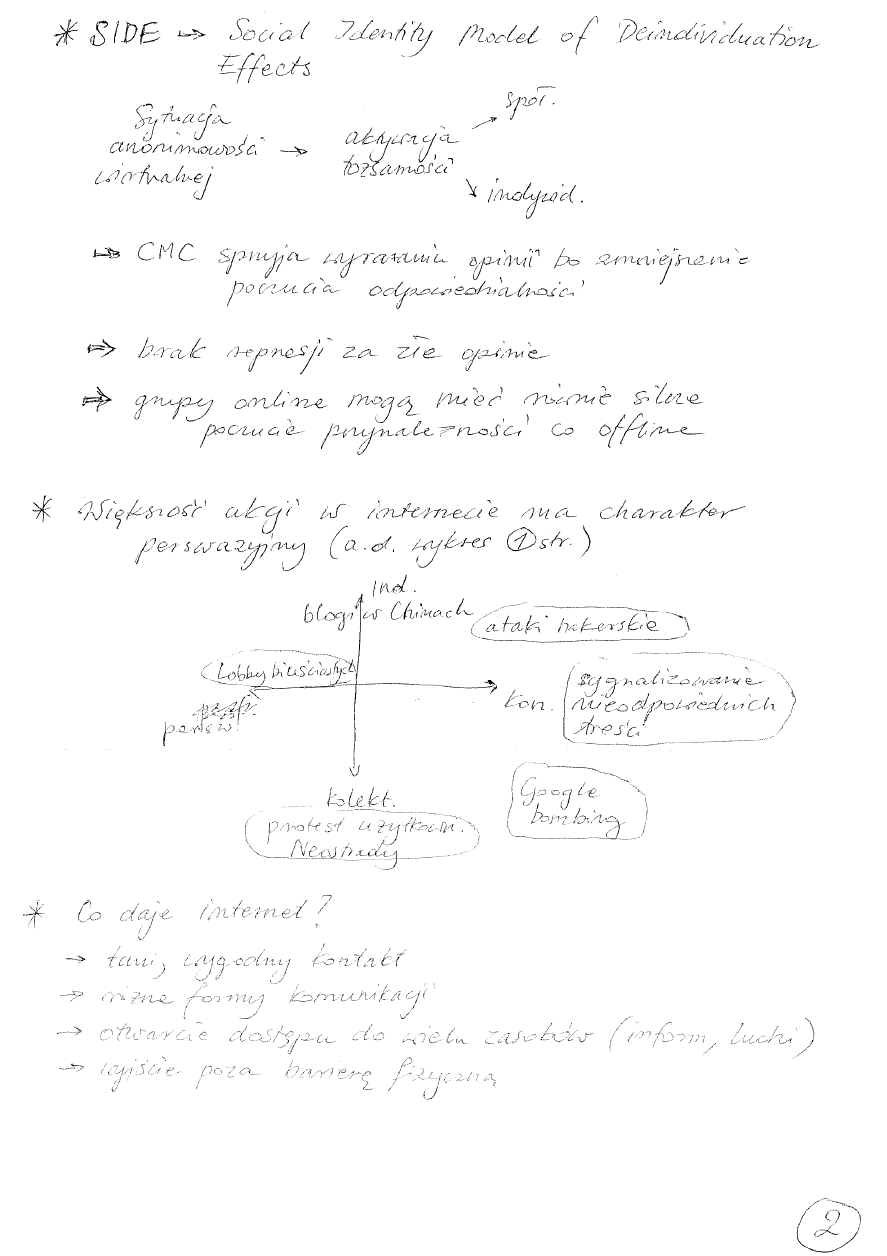 * SIDE → Social Identity Model of Deindividuation
Effects
Sytuacja
anonimowości →
wirtualnej
aktywacja
tożsamości
społ.
indywid.
→ CMC sprzyja wyrażaniu opinii bo zmniejszenie
poczucia odpowiedzialności
⇒ brak represji za złe opinie
⇒ grupy online mogą mieć równie silne
poczucie przynależności co offline
* Większość akcji w internecie ma charakter
perswazyjny (a.d. wykres ① str.)
Ind.
blogi w Chinach
ataki hakerskie
Lobby biuściastych
kon.
sygnalizowanie
nieodpowiednich
treści
persw.
Kolekt.
protest użytkown.
Neostrady
Google
bombing
* Co daje internet?
→ tani, wygodny kontakt
→ różne formy komunikacji
→ otwarcie dostępu do wielu zasobów (inform, ludzi)
→ wyjście poza barierę fizyczną
2